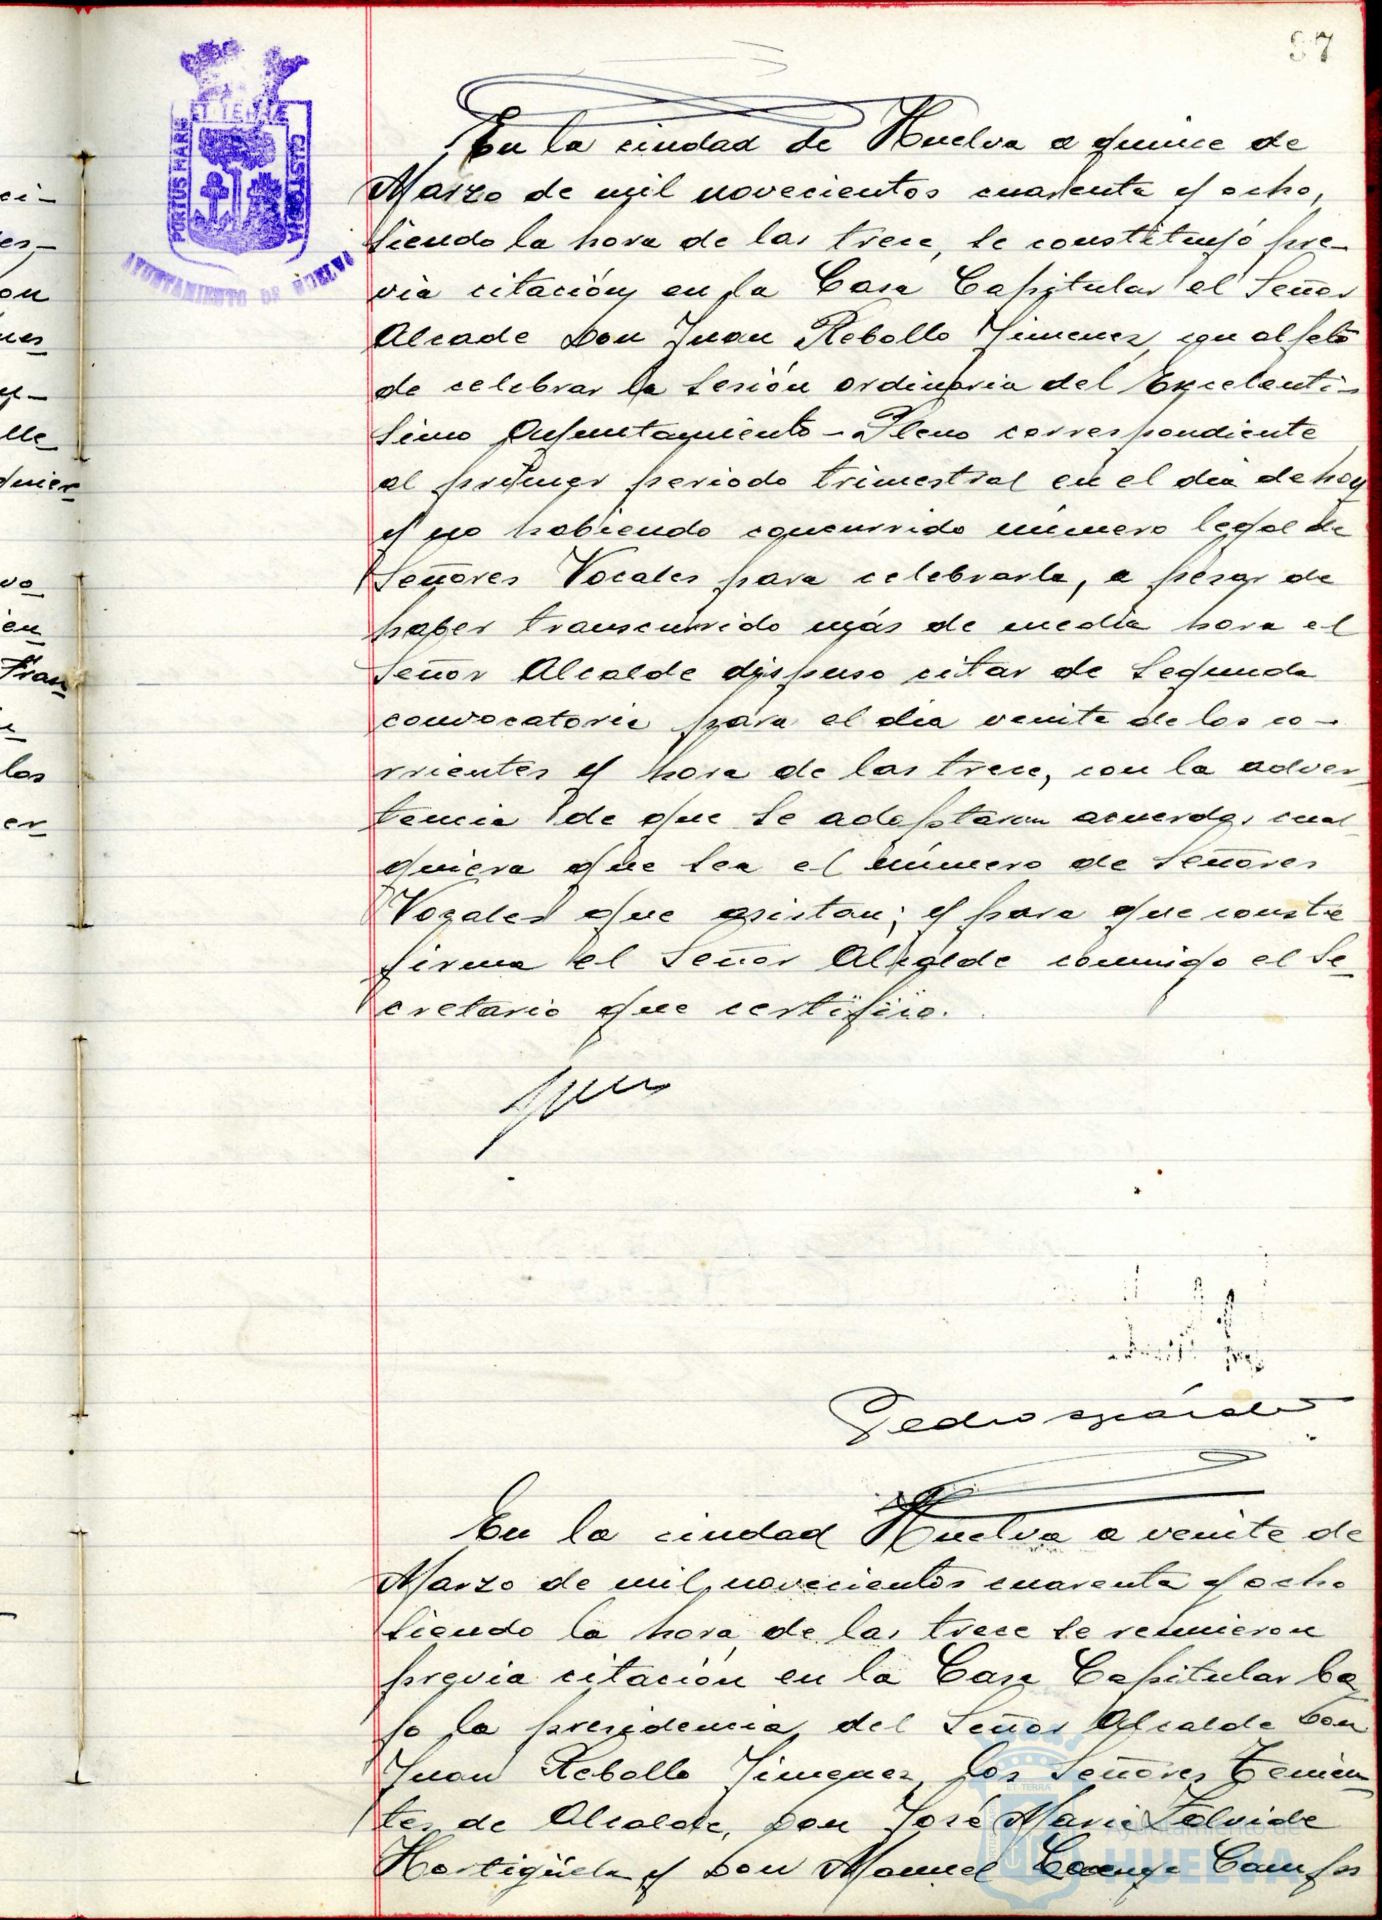 97
PORTUS MARIS ET TERRAE CUSTODIA
AYUNTAMIENTO DE HUELVA
En la ciudad de Huelva a quince de
Marzo de mil novecientos cuarenta y ocho,
siendo la hora de las trece, se constituyó pre-
via citación en la Casa Capitular el Señor
Alcade Don Juan Rebollo Jimenez, con objeto
de celebrar la sesión ordinaria del Excelenti-
simo Ayuntamiento-Pleno correspondiente
al primer periodo trimestral en el dia de hoy
y no habiendo concurrido número legal de
Señores Vocales para celebrarla, a pesar de
haber transcurrido más de media hora el
Señor Alcalde dispuso citar de segunda
convocatoria para el dia veinte de los co-
rrientes y hora de las trece, con la adver-
tencia de que se adoptaran acuerdos cual-
quiera que sea el número de Señores
Vocales que asistan; y para que conste
firma el Señor Alcalde conmigo el Se-
cretario que certifico.
Pedro
En la ciudad Huelva a veinte de
Marzo de mil novecientos cuarenta y ocho
siendo la hora de las trece se reunieron
previa citación en la Casa Capitular ba-
jo la presidencia del Señor Alcalde Don
Juan Rebollo Jimenez, los Señores Tenien-
tes de Alcalde, Don José Maria Zalvide
Hortigüela y Don Manuel Campos
Ayuntamiento de
HUELVA
ci-
on
en
Fran
los
er